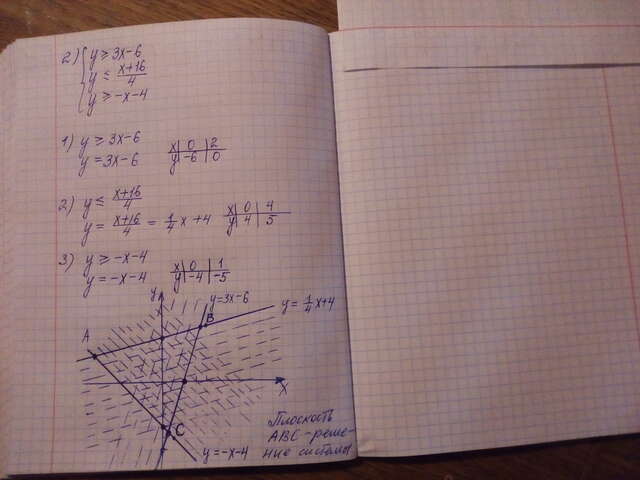 2) { y ≥ 3x-6
y ≤ x+16/4
y ≥ -x-4
1) y ≥ 3x-6
y = 3x-6 x | 0 | 2
y | -6 | 0
2) y ≤ x+16/4
y = x+16/4 = 1/4 x + 4 x | 0 | 4
y | 4 | 5
3) y ≥ -x-4
y = -x-4 x | 0 | 1
y | -4 | -5
y
y=3x-6
y = 1/4 x+4
A
B
x
C
y=-x-4
Плоскость
ABC - реше-
ние системы